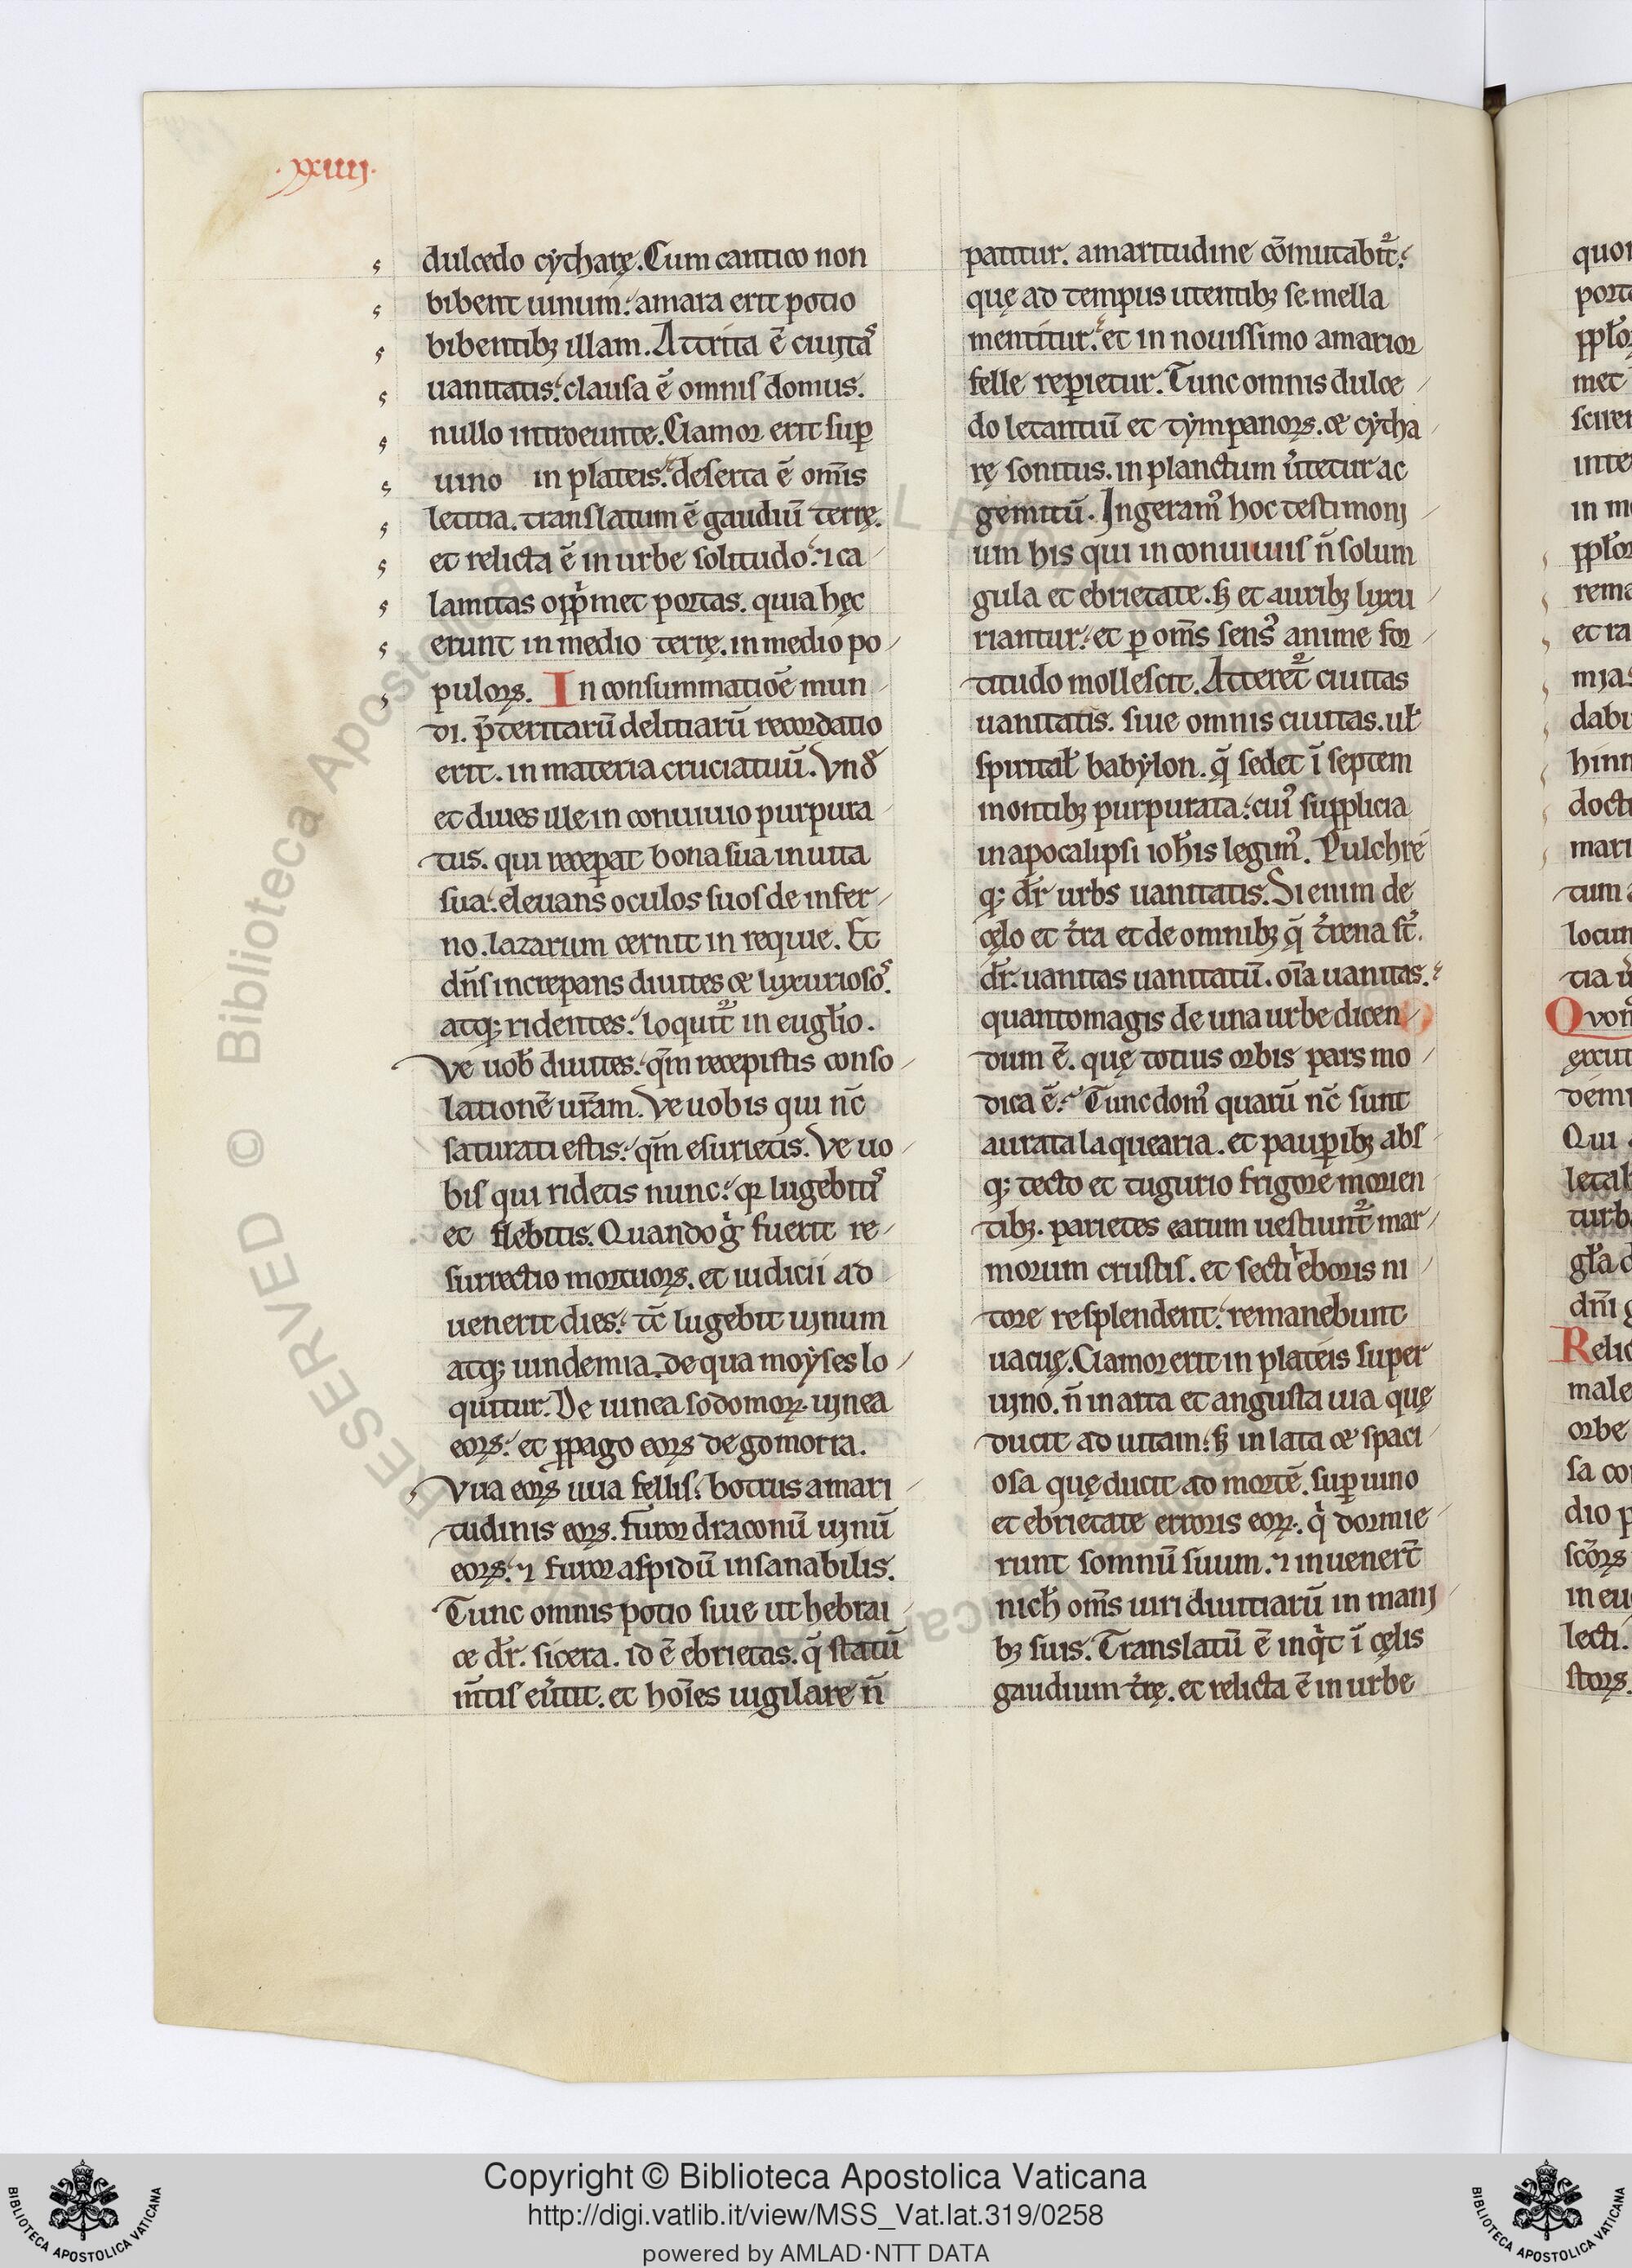 .xxiiij.
dulcedo cytharę. Cum cantico non
bibent uinum: amara erit potio
bibentibꝫ illam. Attrita ē ciuitaˢ
uanitatis: clausa ē omnis domus.
nullo introeunte. Clamor erit suꝑ
uino in plateis: deserta ē om̄is
letitia. translatum ē gaudiū terrę.
et relicta ē in urbe solitudo: ⁊ ca
lamitas opp̍met portas. quia hęc
erunt in medio terrę. in medio po
puloꝝ. In consummatiōe mun
di. p̄teritarū delitiarū recordatio
erit. in materia cruciatuū. Vnđ
et diues ille in conuiuio purpura
tus. qui receꝑat bona sua in uita
sua: eleuans oculos suos de infer
no. lazarum cernit in requie. Et
dn̄s increpans diuites ⁊ luxuriosoˢ
atqꝫ ridentes: loquit᷑ in eugl̄io.
Ve uob̄ diuites: qm̄ recepistis conso
lationē ur̄am. Ve uobis qui nc̄
saturati estis: qm̄ esurietis. Ve uo
bis qui ridetis nunc: qꝛ lugebitiˢ
et flebitis. Quando g̍ fuerit re
surrectio mortuoꝝ. et iudicii ad
uenerit dies: tc̄ lugebit uinum
atqꝫ uindemia. de qua moyses lo
quitur. De uinea sodomoꝝ. uinea
eoꝝ: et ꝓpago eoꝝ de gomorra.
Vua eoꝝ uua fellis: botrus amari
tudinis eoꝝ. furor draconū uinū
eoꝝ: ⁊ furor aspidū insanabilis.
Tunc omnis potio siue ut hebrai
ce dr̄. sicera. id ē ebrietas. q̄ statū
m̄tis eu̍tit. et hoīes uigilare n̄
patitur. amaritudine cōmutabit᷑:
quę ad tempus utentibꝫ se mella
mentitur: et in nouissimo amarior
felle reꝑietur. Tunc omnis dulce
do letantiū et tympanoꝝ. ⁊ cytha
rę sonitus. in planctum u̍tetur ac
gemitū. Ingeram᷒ hoc testimoni
um his qui in conuiuiis n̄ solum
gula et ebrietate. ꝫ et auribꝫ luxu
riantur: et ꝑ om̄s sens᷒ anime for
titudo mollescit. Atteret᷑ ciuitas
uanitatis. siue omnis ciuitas. ul̄
spirital̄ babylon. q̄ sedet ī septem
montibꝫ purpurata: cui᷒ supplicia
in apocalipsi ioh̄is legim᷒. Pulchre
qꝫ dr̄ urbs uanitatis. Si enim de
cęlo et t̍ra et de omnibꝫ q̄ t̍rena st̄.
dr̄. uanitas uanitatū. oīa uanitas:
quanto magis de una urbe dicen
dum ē. quę totius orbis pars mo
dica ē: Tunc dom᷒ quarū nc̄ sunt
aurata laquearia. et pauꝑibꝫ abs
qꝫ tecto et tugurio frigore morien
tibꝫ. parietes earum uestiunt᷑ mar
morum crustis. et sectⁱ eboris ni
tore resplendent: remanebunt
uacuę. Clamor erit in plateis super
uino. n̄ in arta et angusta uia quę
ducit ad uitam: ꝫ in lata ⁊ spaci
osa quę ducit ad mortē. suꝑ uino
et ebrietate erroris eoꝝ. q̍ dormie
runt somnū suum. ⁊ inuenert̄
nich̄ om̄s uiri diuitiarū in mani
bꝫ suis. Translatū ē inq̍t ī cęlis
gaudium t̍rę. et relicta ē in urbe
Copyright © Biblioteca Apostolica Vaticana
http://digi.vatlib.it/view/MSS_Vat.lat.319/0258
powered by AMLAD·NTT DATA